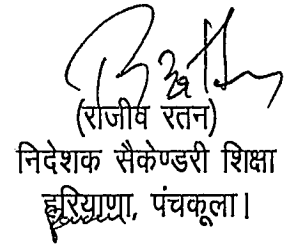 (राजीव रतन)
निदेशक सैकेण्डरी शिक्षा
हरियाणा, पंचकूला।